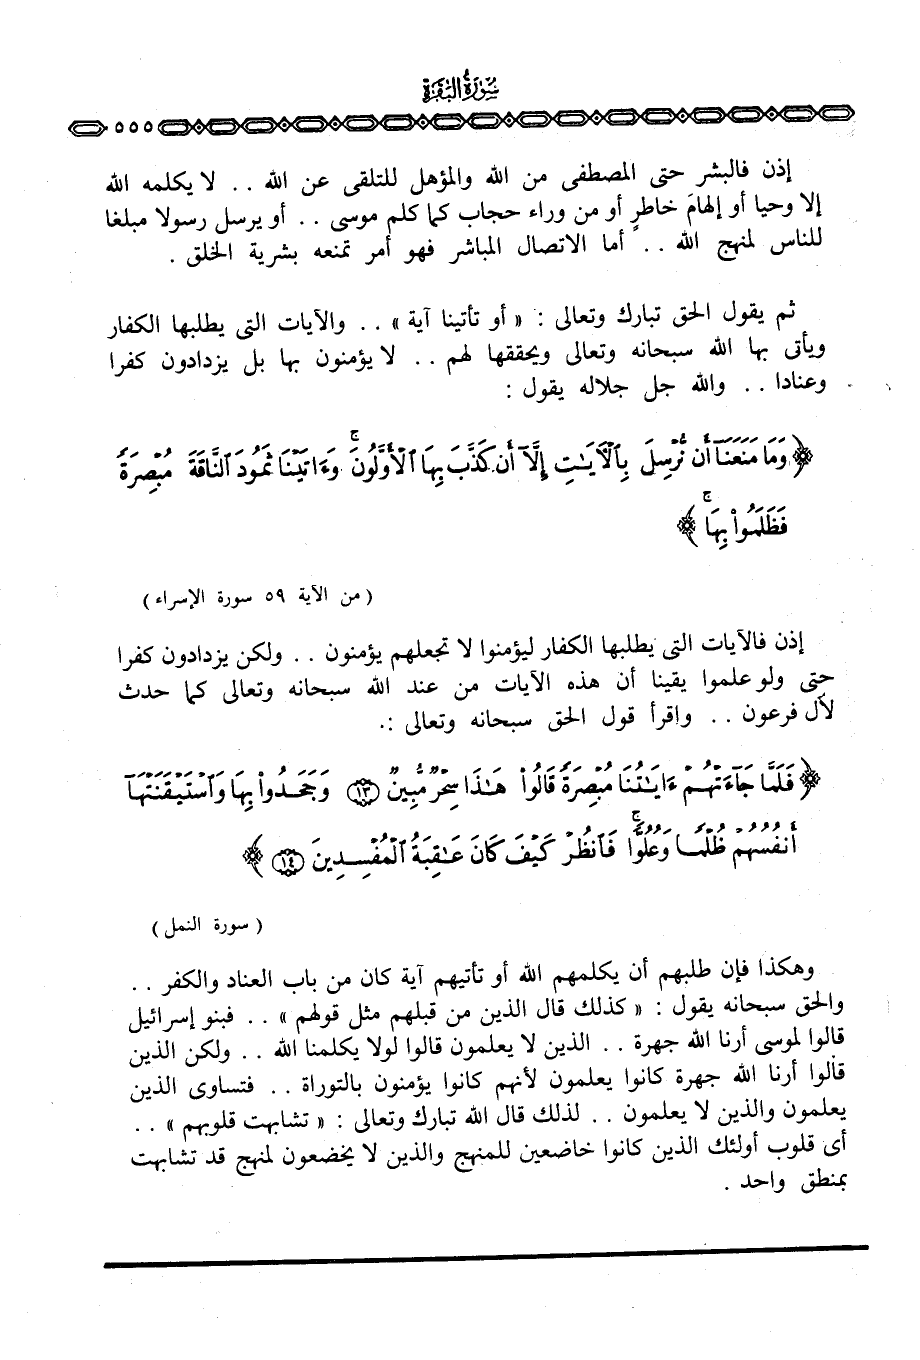 سورة البقرة
٥٥٥
إذن فالبشر حتى المصطفى من الله والمؤهل للتلقى عن الله .. لا يكلمه الله
إلا وحيا أو إلهامَ خاطرٍ أو من وراء حجاب كما كلم موسى .. أو يرسل رسولا مبلغا
للناس لمنهج الله .. أما الاتصال المباشر فهو أمر تمنعه بشرية الخلق .
ثم يقول الحق تبارك وتعالى : « أو تأتينا آية » .. والآيات التى يطلبها الكفار
ويأتى بها الله سبحانه وتعالى ويحققها لهم .. لا يؤمنون بها بل يزدادون كفرا
وعنادا .. والله جل جلاله يقول :
﴿ وَمَا مَنَعَنَآ أَن نُّرْسِلَ بِٱلْأَيَـٰتِ إِلَّآ أَن كَذَّبَ بِهَا ٱلْأَوَّلُونَ ۚ وَءَاتَيْنَا ثَمُودَ ٱلنَّاقَةَ مُبْصِرَةً
فَظَلَمُوا۟ بِهَا ۚ ﴾
( من الآية ٥٩ سورة الإسراء )
إذن فالآيات التى يطلبها الكفار ليؤمنوا لا تجعلهم يؤمنون .. ولكن يزدادون كفرا
حتى ولو علموا يقينا أن هذه الآيات من عند الله سبحانه وتعالى كما حدث
لآل فرعون .. واقرأ قول الحق سبحانه وتعالى :
﴿ فَلَمَّا جَآءَتْهُمْ ءَايَـٰتُنَا مُبْصِرَةً قَالُوا۟ هَـٰذَا سِحْرٌ مُّبِينٌ ١٣ وَجَحَدُوا۟ بِهَا وَٱسْتَيْقَنَتْهَآ
أَنفُسُهُمْ ظُلْمًا وَعُلُوًّا ۚ فَٱنظُرْ كَيْفَ كَانَ عَـٰقِبَةُ ٱلْمُفْسِدِينَ ١٤ ﴾
( سورة النمل )
وهكذا فإن طلبهم أن يكلمهم الله أو تأتيهم آية كان من باب العناد والكفر ..
والحق سبحانه يقول : « كذلك قال الذين من قبلهم مثل قولهم » .. فبنو إسرائيل
قالوا لموسى أرنا الله جهرة .. الذين لا يعلمون قالوا لولا يكلمنا الله .. ولكن الذين
قالوا أرنا الله جهرة كانوا يعلمون لأنهم كانوا يؤمنون بالتوراة .. فتساوى الذين
يعلمون والذين لا يعلمون .. لذلك قال الله تبارك وتعالى : « تشابهت قلوبهم » ..
أى قلوب أولئك الذين كانوا خاضعين للمنهج والذين لا يخضعون لمنهج قد تشابهت
بمنطق واحد .